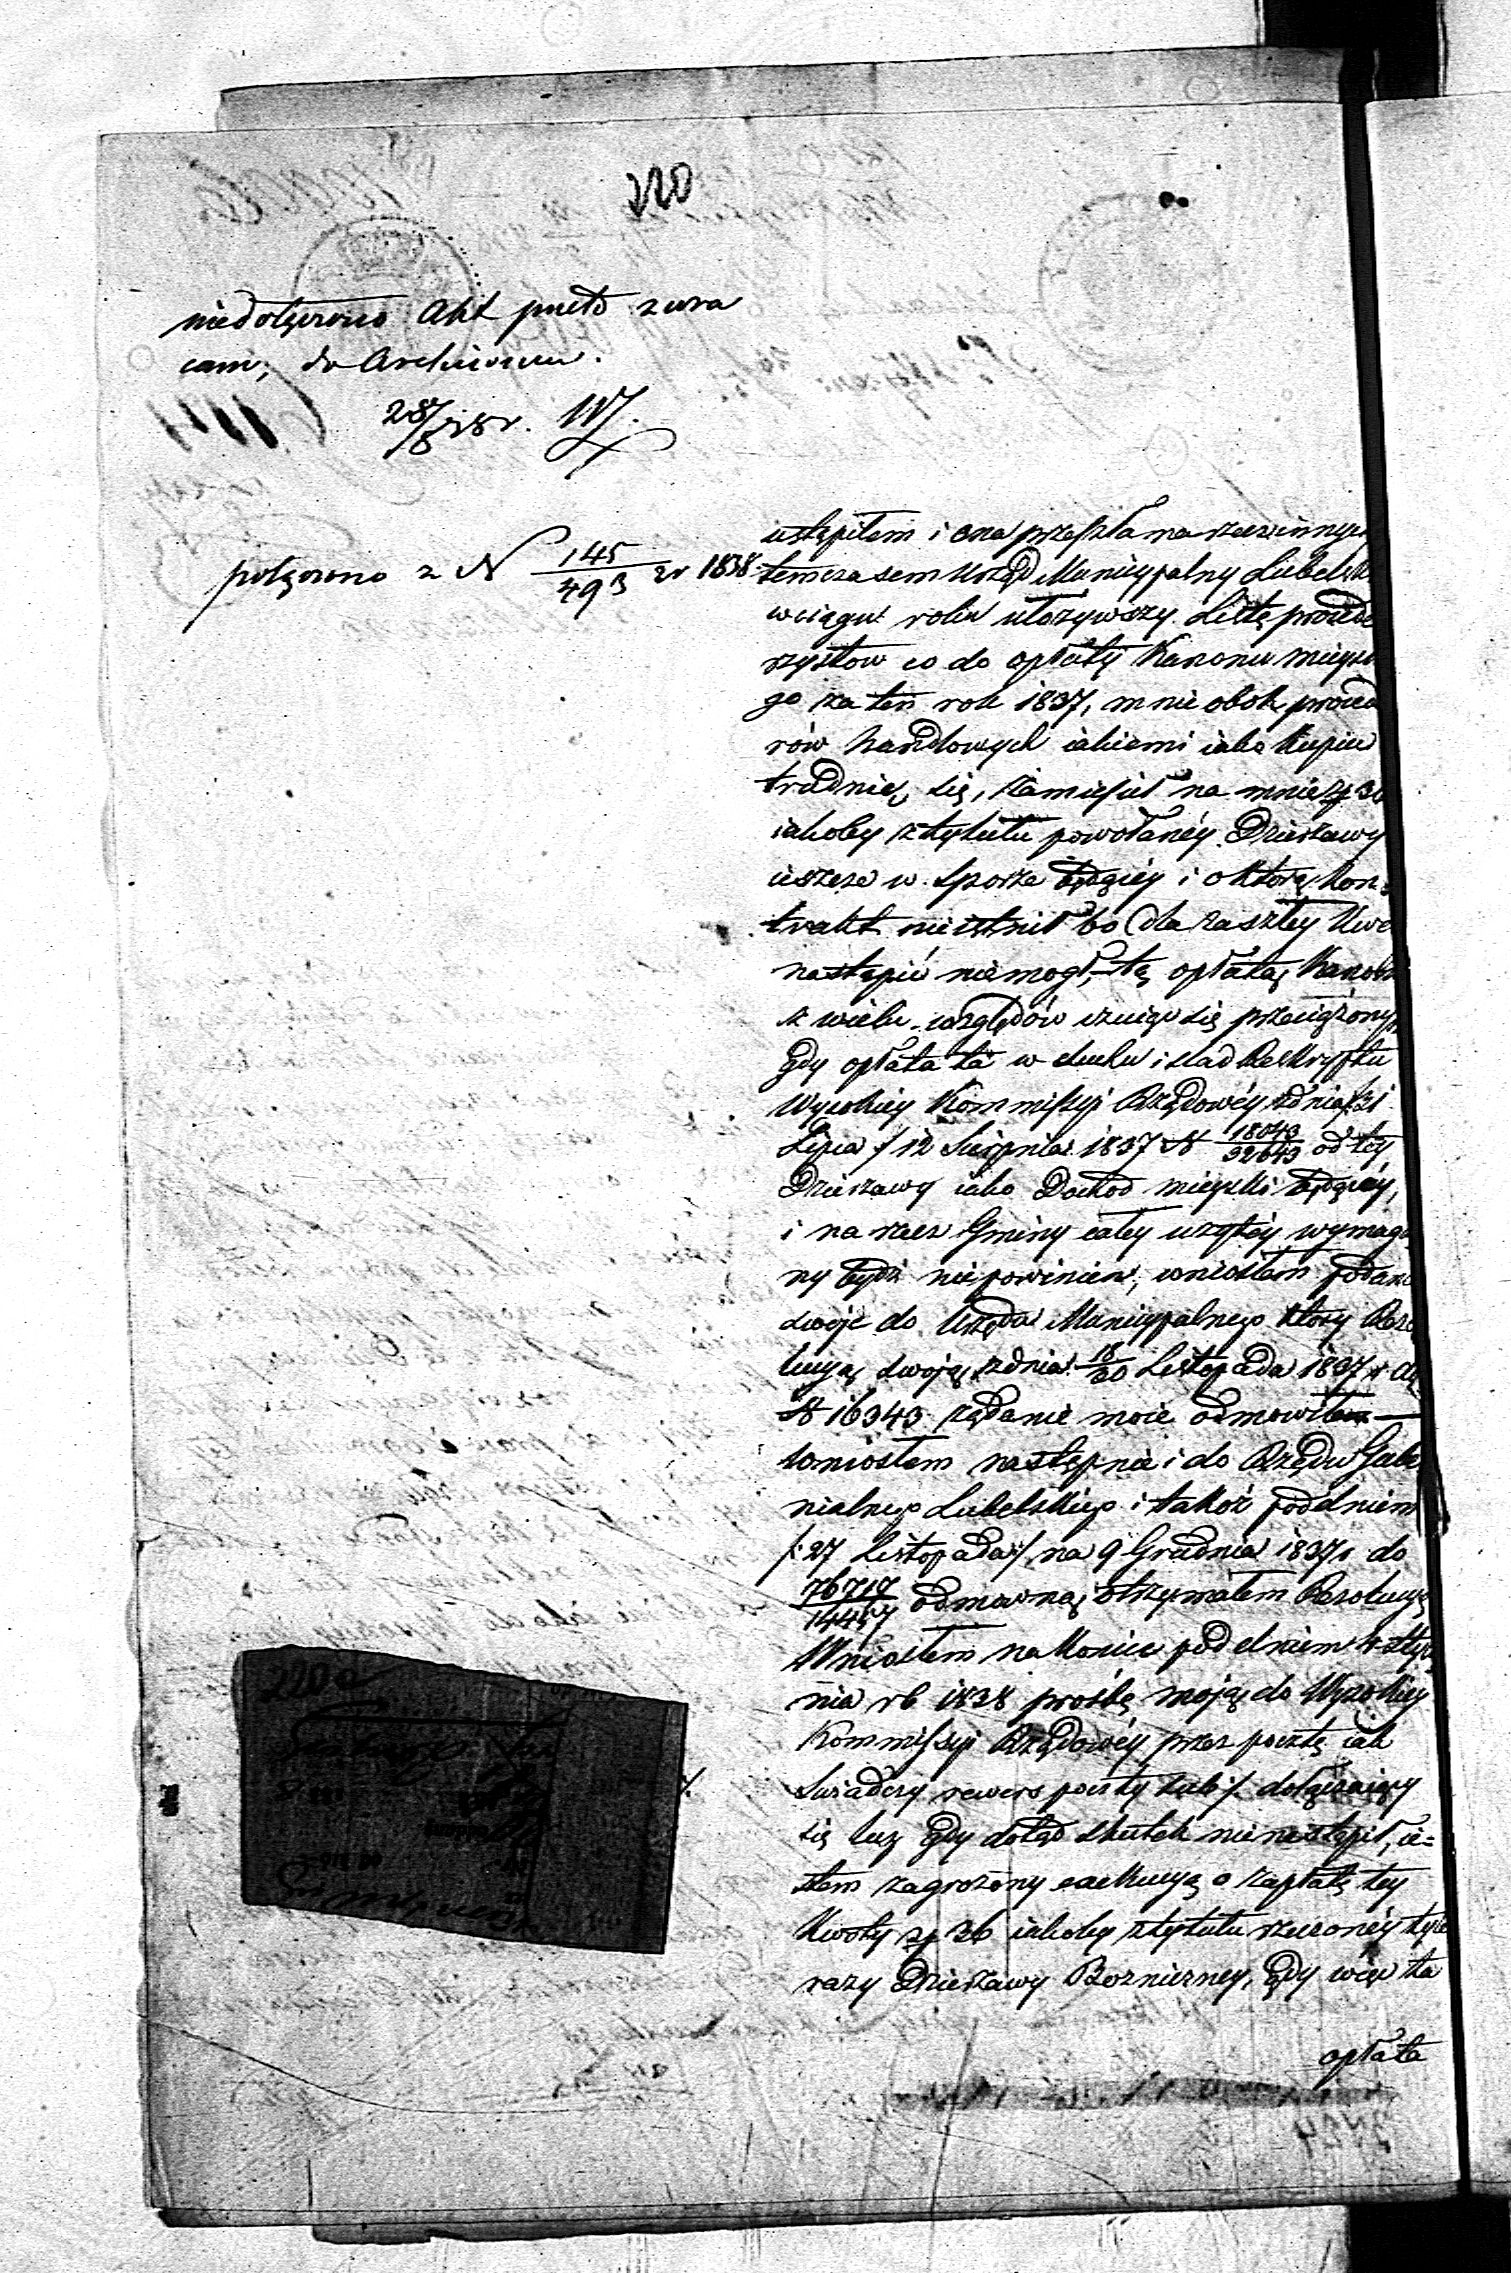 220
niedołączono Akt przeto zwra
cam, do Archiwum.
28/8 38 r.
połączono z N 145/493 zr 1838.
ustąpiłem i ona przeszła na rzecz innych
temczasem Urząd Municypalny Lubelski
wciągu roku ułożywszy Listę procede
rzystow co do opłaty Kanonu mieysk
go za ten rok 1837, mnie obok proced
rów handlowych iakiemi iako Kupiec
trudnię się, zamieścił na mnie zł 36
iakoby z tytułu powołanéy Dzierzawy
ieszcze w sporze będącéy i o którą kon-
trakt nieistniał bo dla zaszłey
nastąpić niemogł, tą opłatą Kanonu
z wielu względów czuiąc się przeciążonym
gdy opłata ta w duchu i ślad Reskryptu
Wysokiey Kommissyi Rządowéy zdnia /:31
Lipca / 12 Sierpnia 1837 N 18043/32643 od téy
Dzierzawy iako Dochod mieyski będącéy,
i na rzecz Gminy całey wziętéy wymaga
ny bydź niepowinien, wniosłem podanie
swoje do Urzędu Municypalnego który Rezo
lucyą swoją zdnia 18/30 Listopada 1837 r
N 16343 rządanie moie odmowił —
wniosłem następnie i do Rządu Guber
nialnego Lubelskiego i takoż pod dniem
/:27 Listopada:/ na 9 Grudnia 1837 r do
76717/14457 odmowną otrzymałem Rezolucyę
Wniosłem nakoniec pod dniem 4 Stycz
nia rb 1838 prośbę moją do Wysokiey
Kommissyi Rządowéy przez pocztę iak
Swiadczy rewers poczty dołączaiący
się lecz gdy dotąd skutek nie nastąpił, ie=
stem zagrożony exekucyą o zapłatę tey
Kwoty zł 36 iakoby ztytułu rzeczonéy tyle
razy Dzierzawy Bozniczney, gdy więc ta
opłata
220a